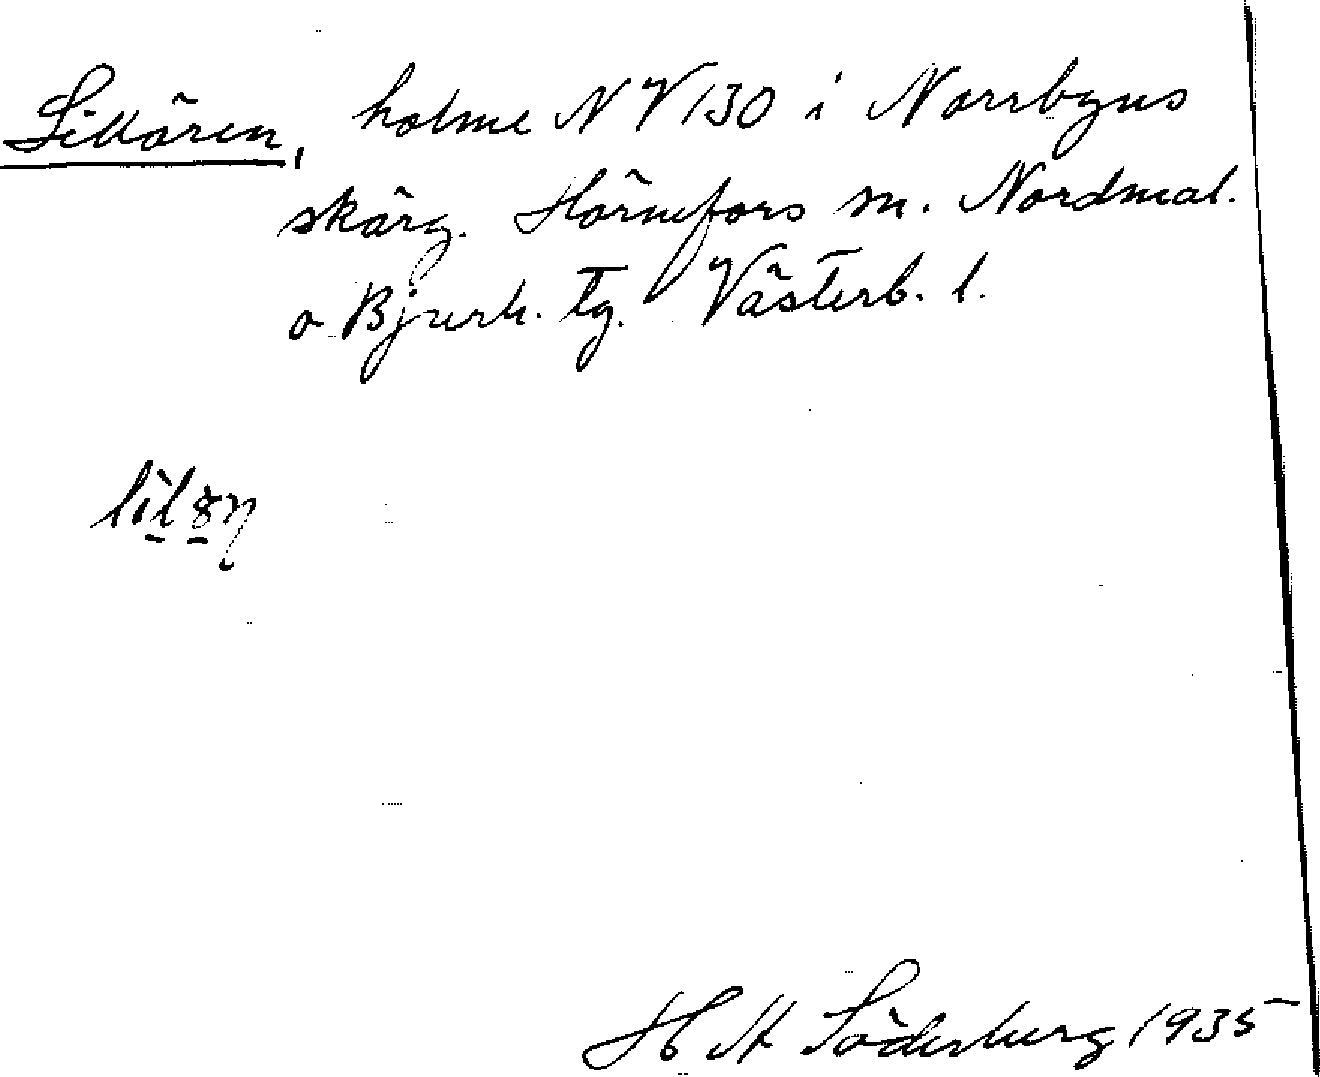 Lillören, holme NV 130 i Norrbyns
skärg. Hörnefors sn. Nordmal.
o Bjurh. tg. Västerb. l.
H A Söderberg 1935